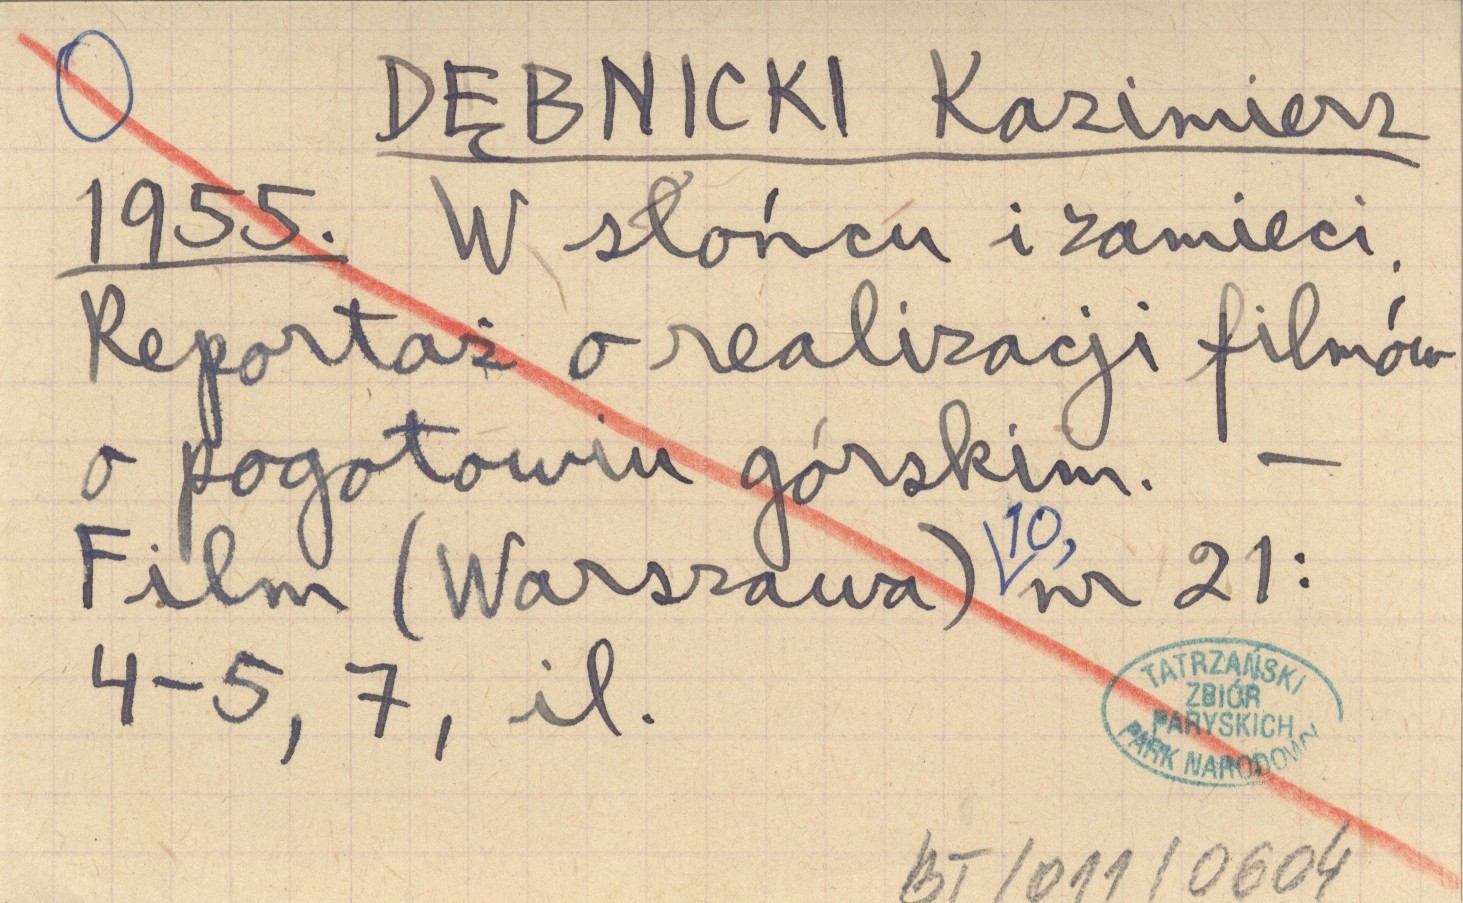 DĘBNICKI Kazimierz
1955. W słońcu i zamieci.
Reportaż o realizacji filmów
o pogotowiu górskim. —
Film (Warszawa) 10, nr 21:
4-5, 7, il.
TATRZAŃSKI
ZBIÓR
PARYSKICH
PARK NARODOWY
BT/011/0604